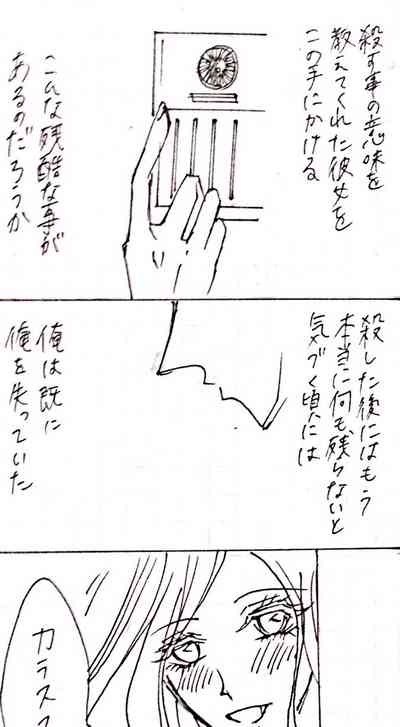 殺す事の意味を
教えてくれた彼女を
この手にかける
こんな残酷な事が
あるのだろうか
殺した後にはもう
本当に何も残らないと
気づく頃には
俺は既に
俺を失っていた
カラス